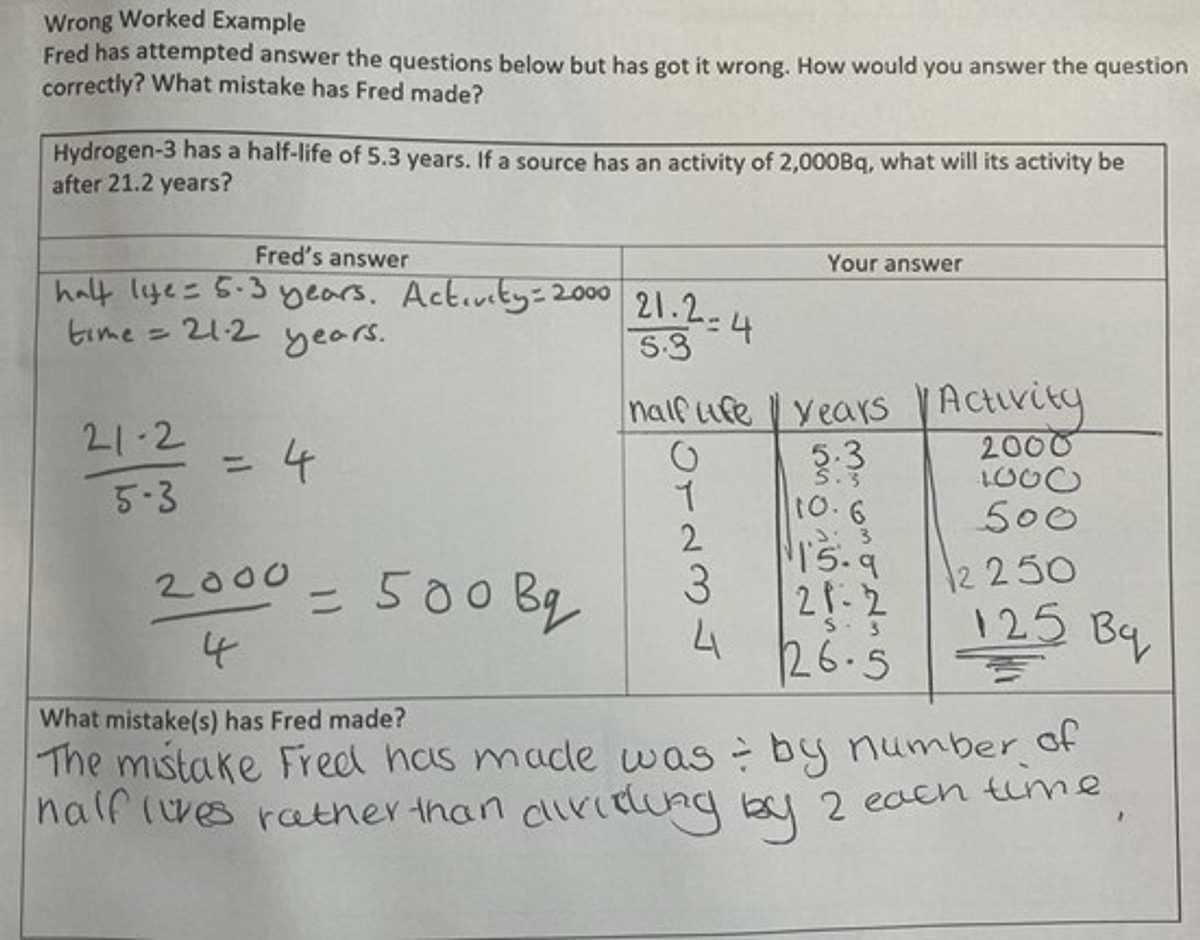 Wrong Worked Example
Fred has attempted answer the questions below but has got it wrong. How would you answer the question
correctly? What mistake has Fred made?
Hydrogen-3 has a half-life of 5.3 years. If a source has an activity of 2,000Bq, what will its activity be
after 21.2 years?
Fred's answer
half life = 5.3 years. Activity = 2000
time = 21.2 years.
21.2
5.3
= 4
2000
4
= 500 Bq
Your answer
21.2
5.3
= 4
half life years Activity
0 5.3 2000
5.3
1 10.6 1000
2 15.9 500
3 21.2 250
5.3
4 26.5 125 Bq
What mistake(s) has Fred made?
The mistake Fred has made was ÷ by number of
half lives rather than dividing by 2 each time